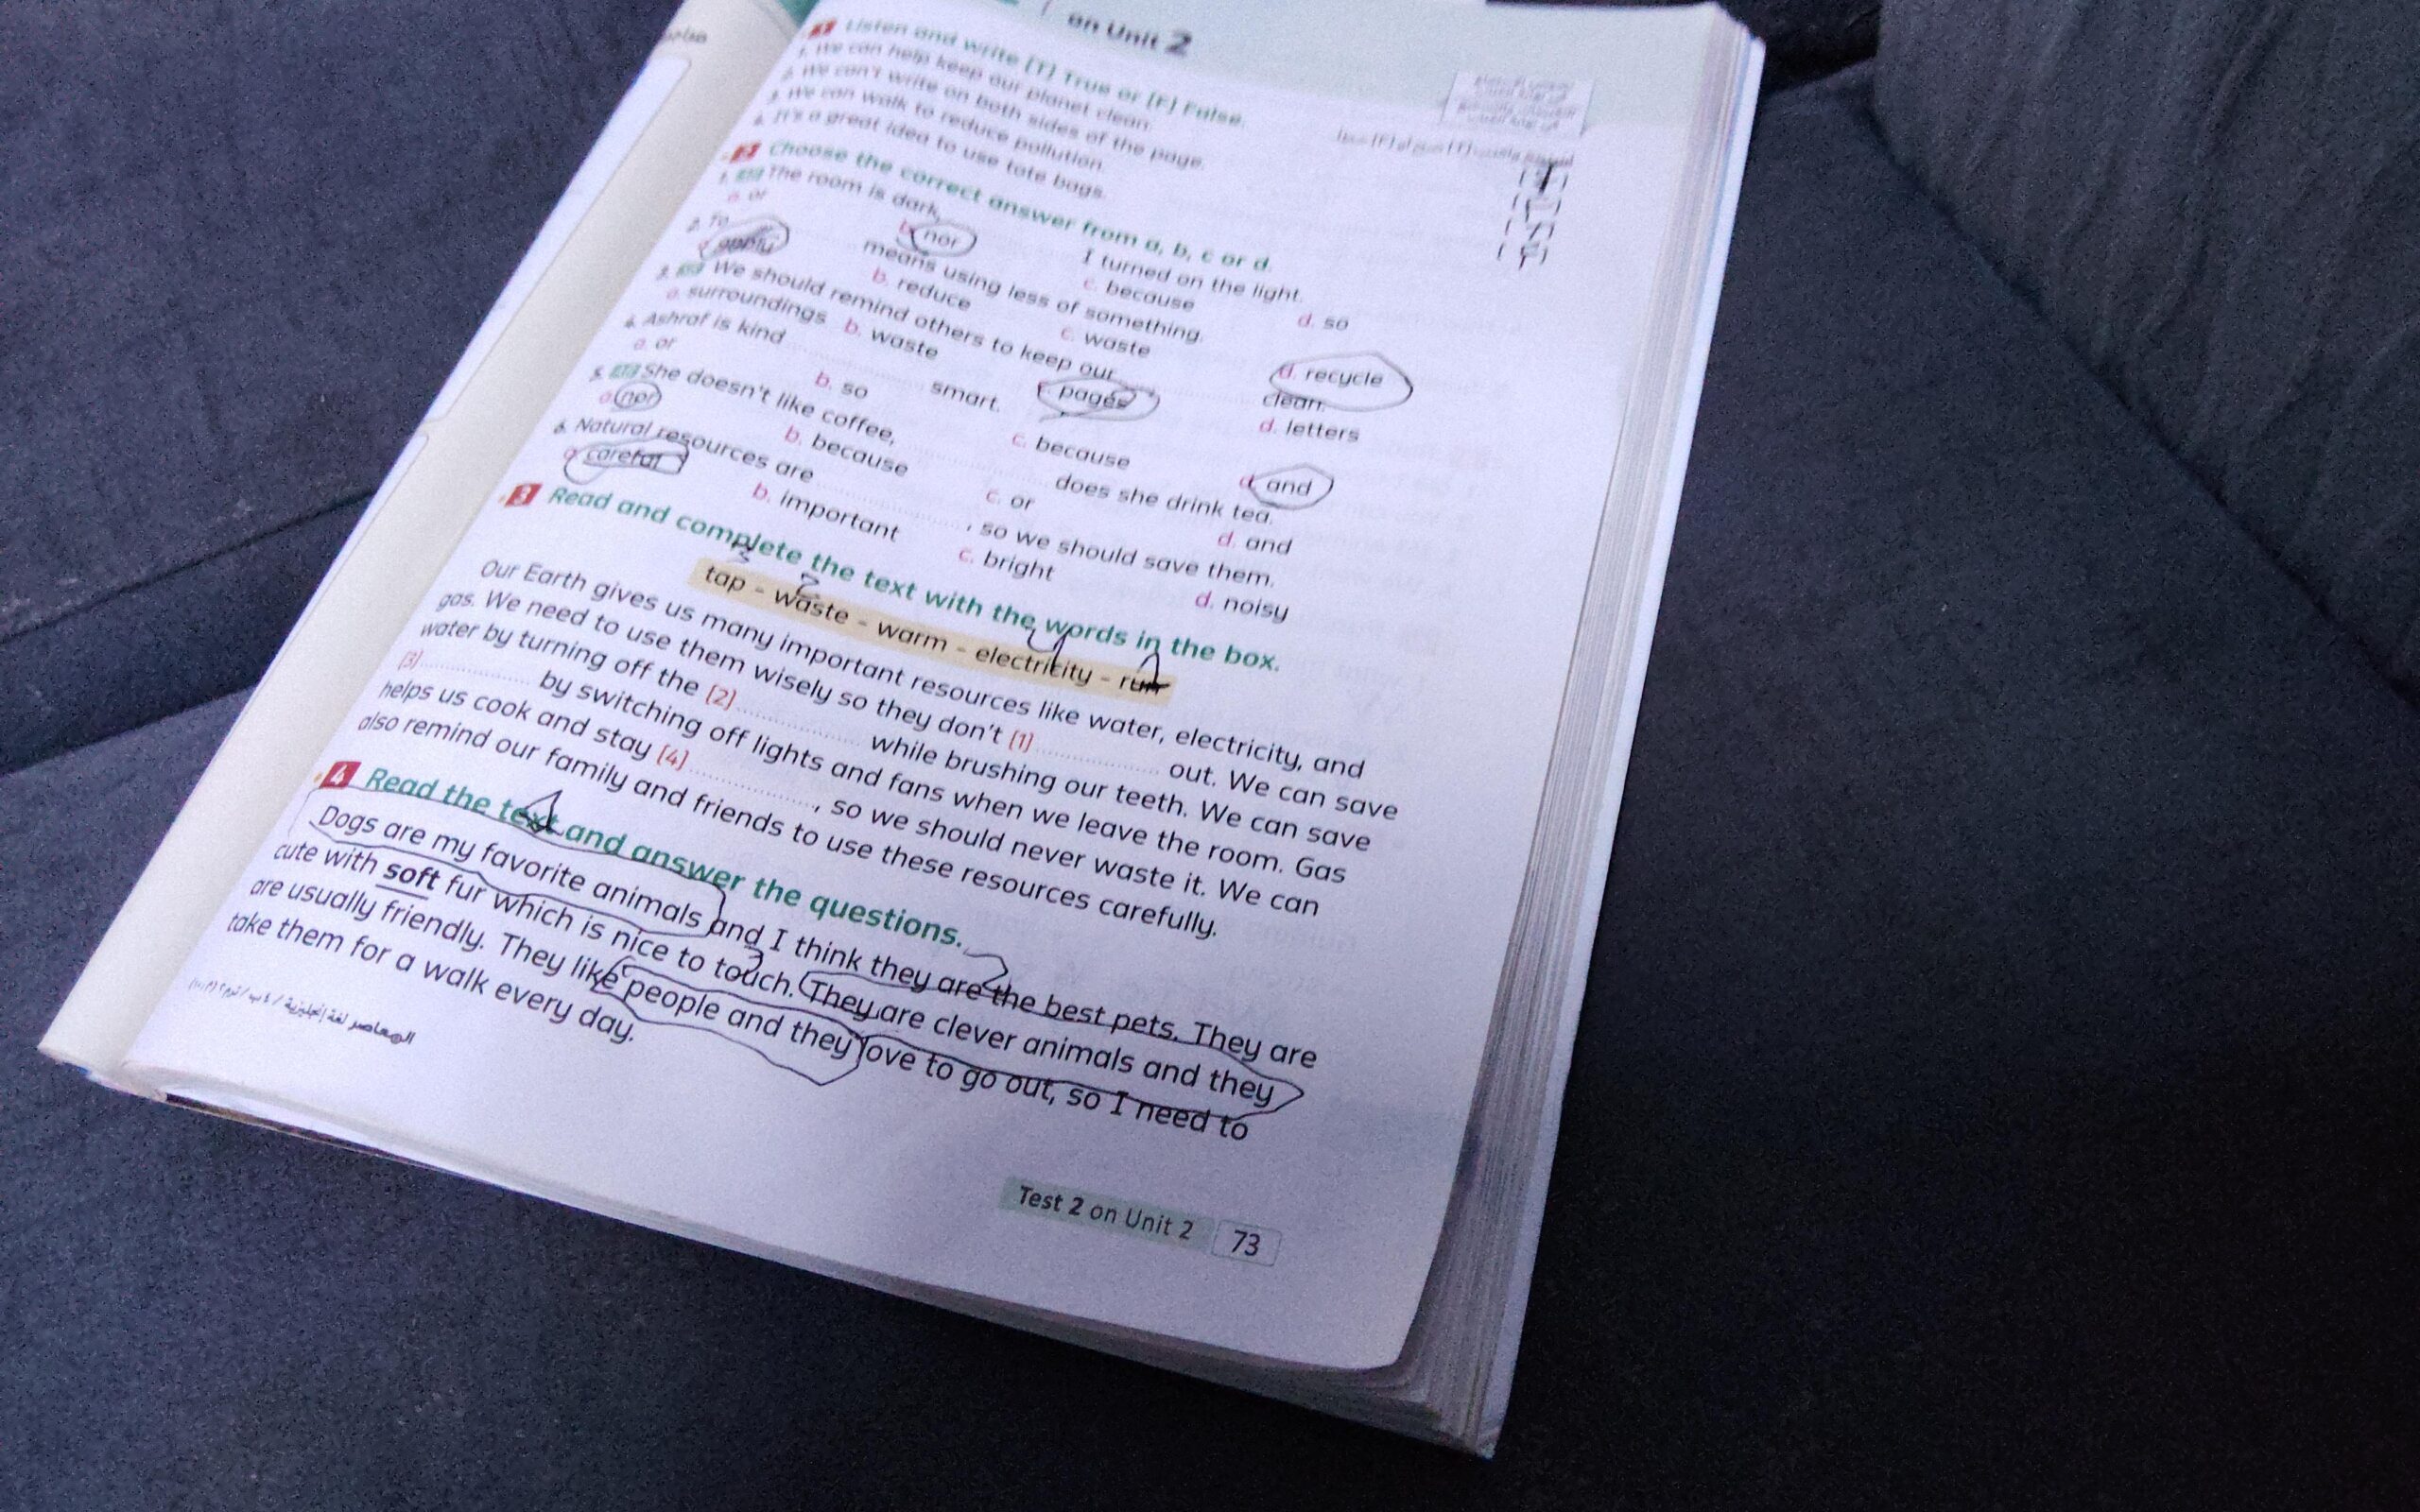 on Unit 2
1 Listen and write (T) True or (F) False.
1. We can help keep our planet clean.
2. We can't write on both sides of the page.
3. We can walk to reduce pollution.
4. It's a great idea to use tote bags.
2 Choose the correct answer from a, b, c or d.
1. The room is dark, I turned on the light.
a. or b. nor c. because d. so
2. To means using less of something.
a. apply b. reduce c. waste d. recycle
3. We should remind others to keep our clean.
a. surroundings b. waste c. pages d. letters
4. Ashraf is kind smart.
a. or b. so c. because d. and
5. She doesn't like coffee, does she drink tea.
a. nor b. because c. or d. and
6. Natural resources are , so we should save them.
a. careful b. important c. bright d. noisy
3 Read and complete the text with the words in the box.
3 2 4 1
tap - waste - warm - electricity - run
Our Earth gives us many important resources like water, electricity, and
gas. We need to use them wisely so they don't (1) out. We can save
water by turning off the (2) while brushing our teeth. We can save
(3) by switching off lights and fans when we leave the room. Gas
helps us cook and stay (4) , so we should never waste it. We can
also remind our family and friends to use these resources carefully.
4 Read the text and answer the questions.
Dogs are my favorite animals and I think they are the best pets. They are
cute with soft fur which is nice to touch. They are clever animals and they
are usually friendly. They like people and they love to go out, so I need to
take them for a walk every day.
المعاصر لغة إنجليزية
Test 2 on Unit 2 73